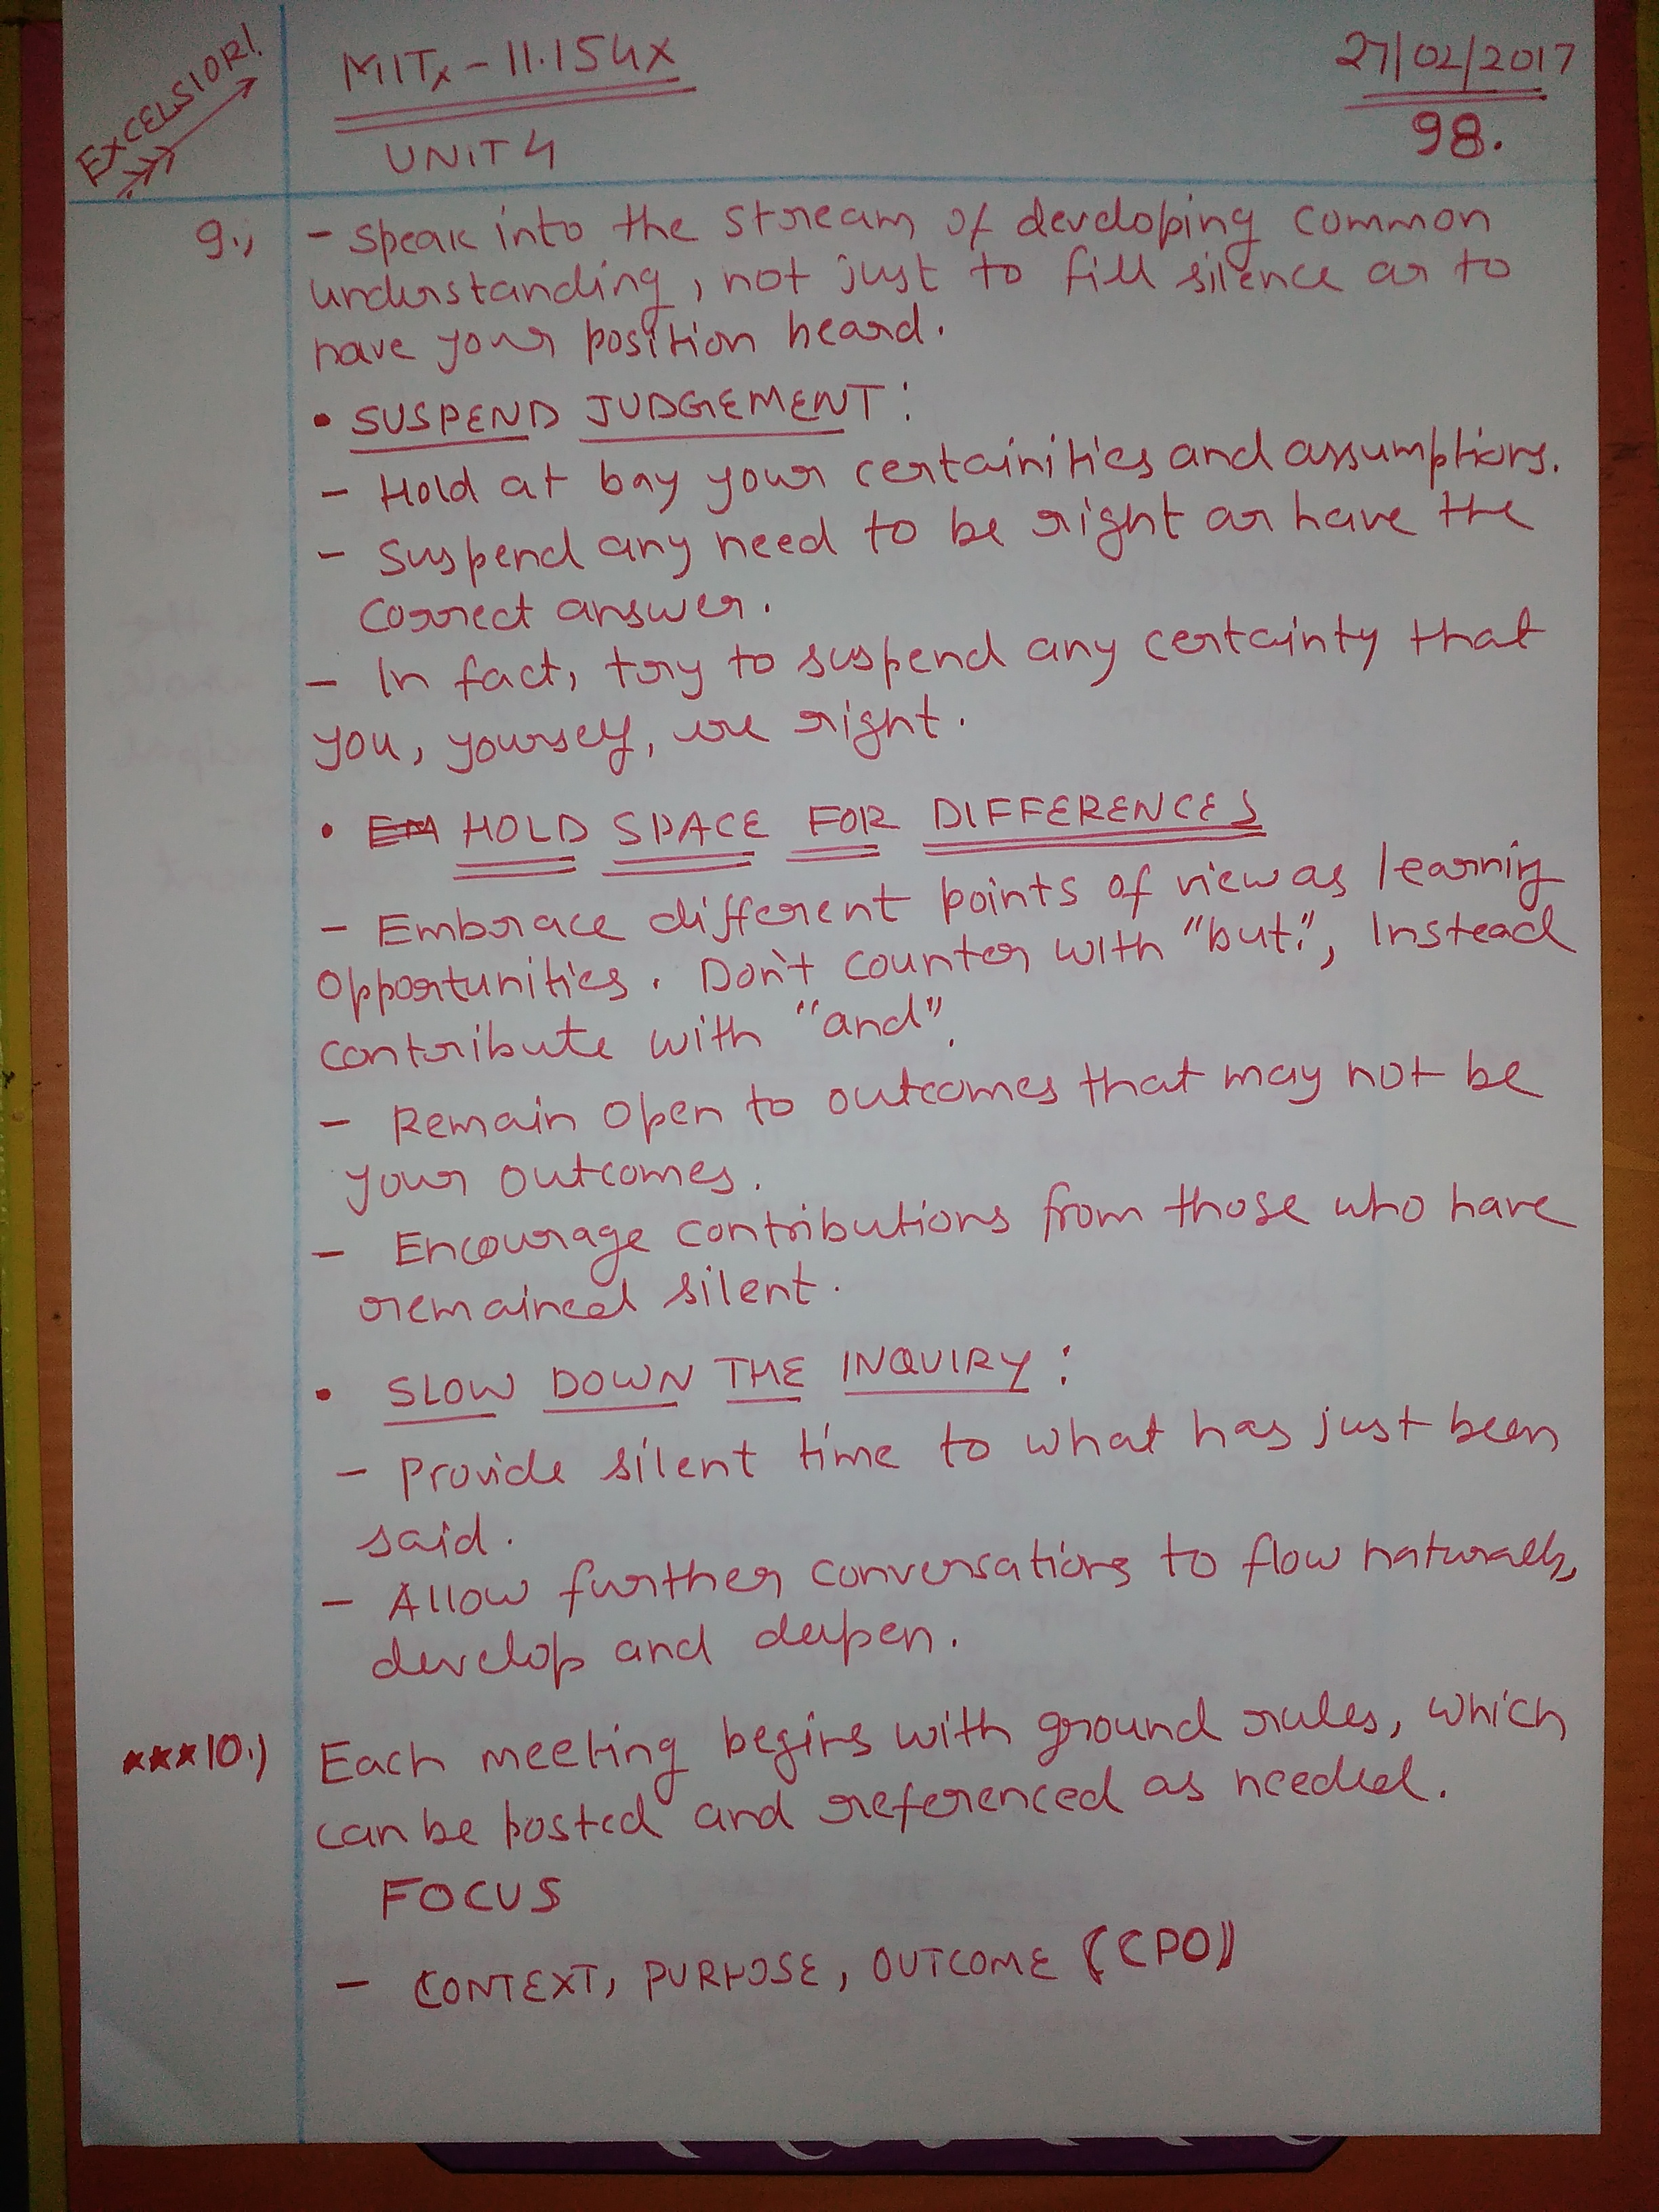 EXCELSIOR!
MITx - 11.154x
27/02/2017
UNIT 4
98.
9.) - Speak into the stream of developing common
understanding, not just to fill silence or to
have your position heard.
• SUSPEND JUDGEMENT:
- Hold at bay your certainities and assumptions.
- Suspend any need to be right or have the
correct answer.
- In fact, try to suspend any certainty that
you, yourself, are right.
• EM HOLD SPACE FOR DIFFERENCES
- Embrace different points of view as learning
opportunities. Don't counter with "but.", Instead
contribute with "and".
- Remain open to outcomes that may not be
your outcomes.
- Encourage contributions from those who have
remained silent.
• SLOW DOWN THE INQUIRY:
- Provide silent time to what has just been
said.
- Allow further conversations to flow naturally,
develop and deepen.
***10.) Each meeting begins with ground rules, which
can be posted and referenced as needed.
FOCUS
- CONTEXT, PURPOSE, OUTCOME (CPO)